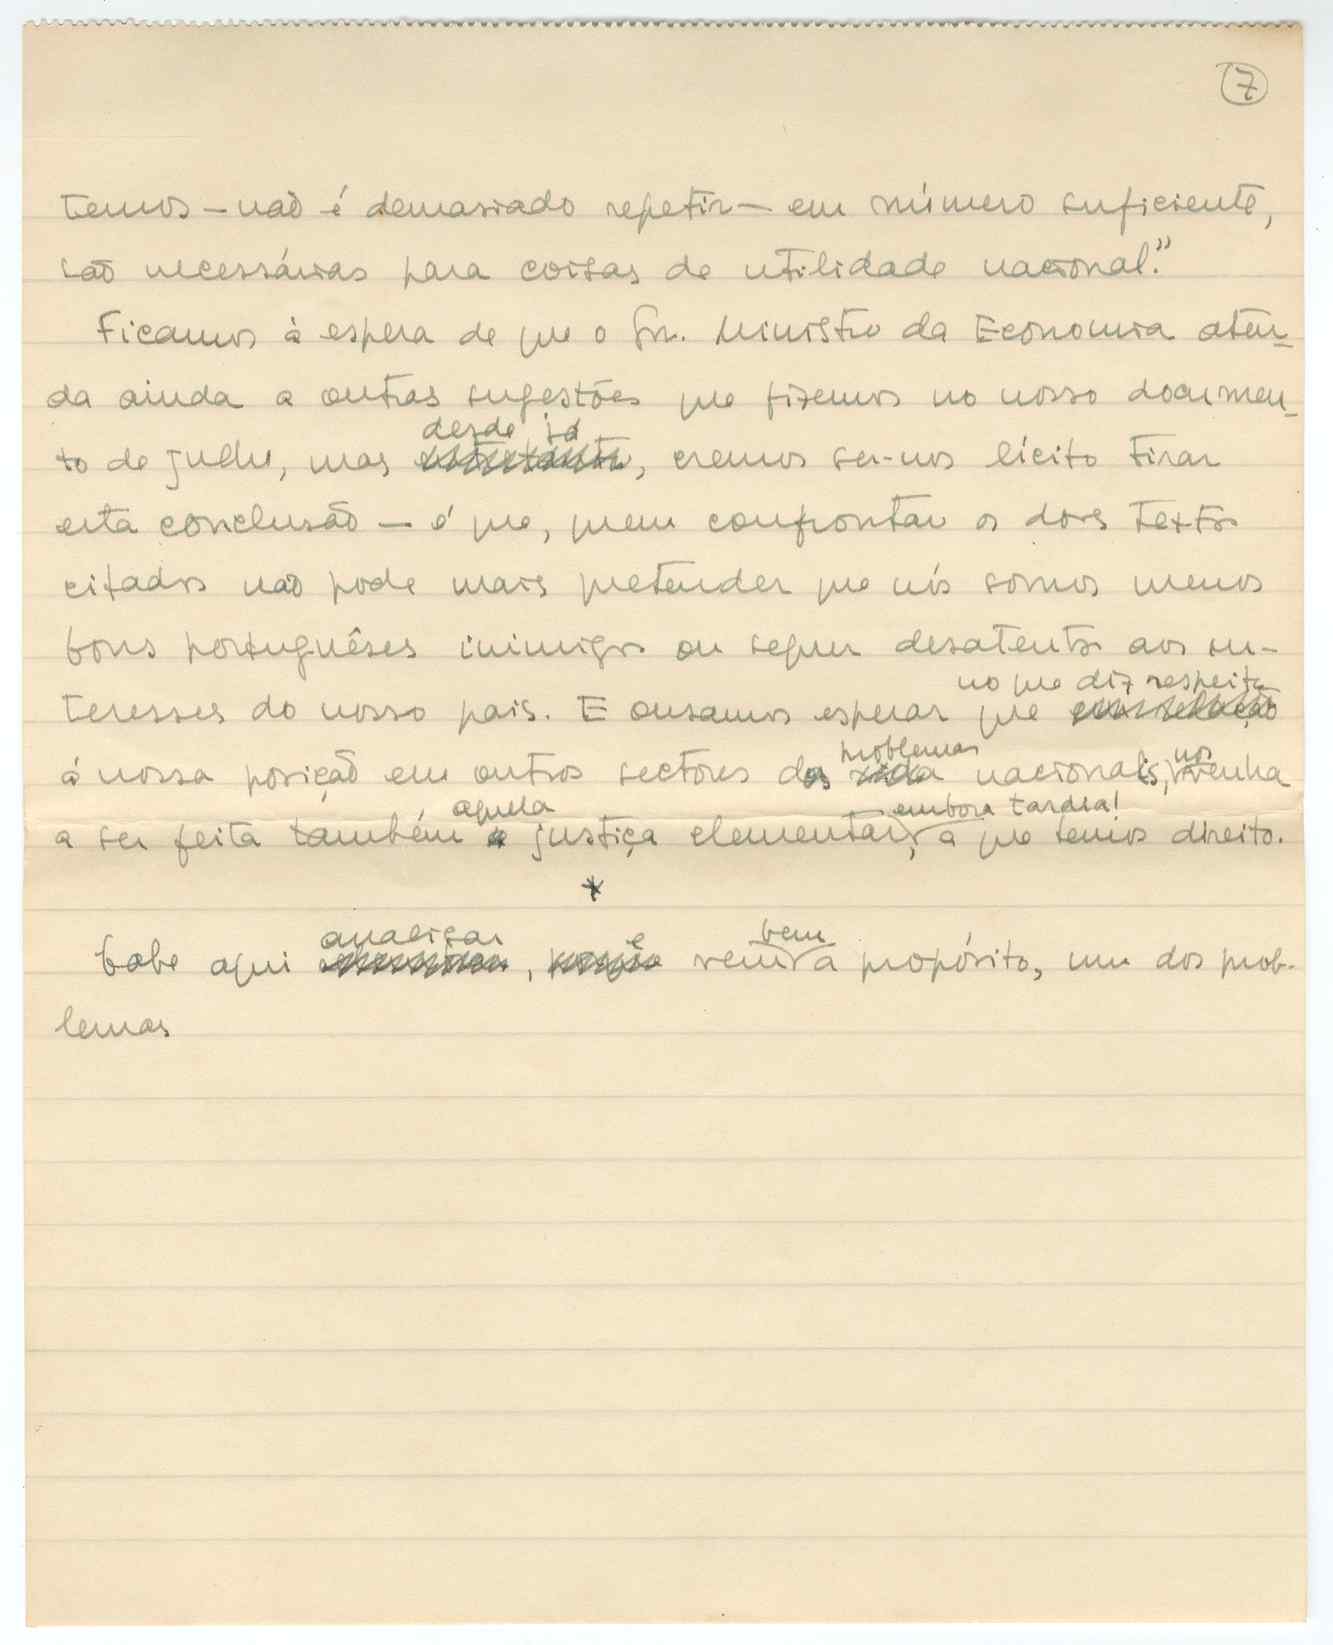 7
temos — não é demasiado repetir — em número suficiente,
são necessárias para coisas de utilidade nacional."
Ficamos à espera de que o Snr. Ministro da Economia aten-
da ainda a outras sugestões que fizemos no nosso documen-
desde já
to de julho, mas entretanto, cremos ser-nos lícito tirar
esta conclusão — é que, quem confrontar os dois textos
citados não pode mais pretender que nós somos menos
bons portuguêses inimigos ou sequer desatentos aos in-
no que diz respeito
teresses do nosso pais. E ousamos esperar que com relação
problemas nos
á nossa posição em outros sectores dos vida nacionais, venha
aquela embora tardia!
a ser feita também a justiça elementar, a que temos direito.
*
analisar e bem
Cabe aqui , porque vem a propósito, um dos prob-
lemas